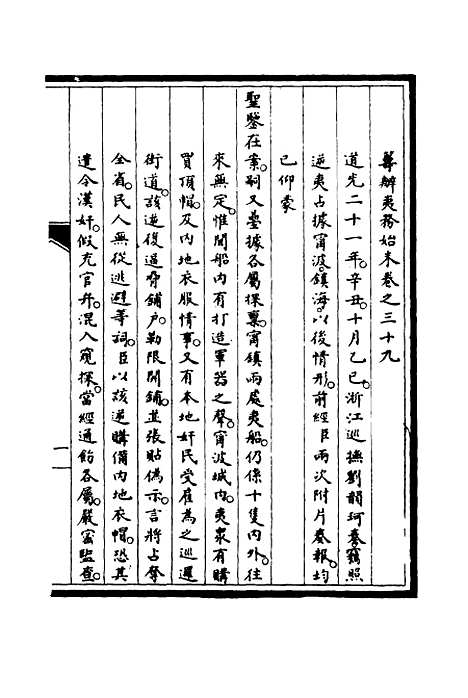 籌辦夷務始末卷之三十九
道光二十一年。辛丑。十月乙巳。浙江巡撫劉韻珂奏。竊照
逆夷占據甯波鎮海。以後情形。前經臣兩次附片奏報。均
已仰蒙
聖鑒在案。嗣又疊據各屬探稟。甯鎮兩處夷船。仍係十隻內外。往
來無定。惟聞船內有打造軍器之聲。甯波城內。夷衆有購
買頂帽。及內地衣服情事。又有本地奸民受雇為之巡邏
街道。該逆復逼脅鋪戶。勒限開鋪。並張貼偽示。言將占奪
全省。民人無從逃避等詞。臣以該逆購備內地衣帽。恐其
遣令漢奸。假充官弁。混入窺探。當經通飭各屬。嚴密監查。